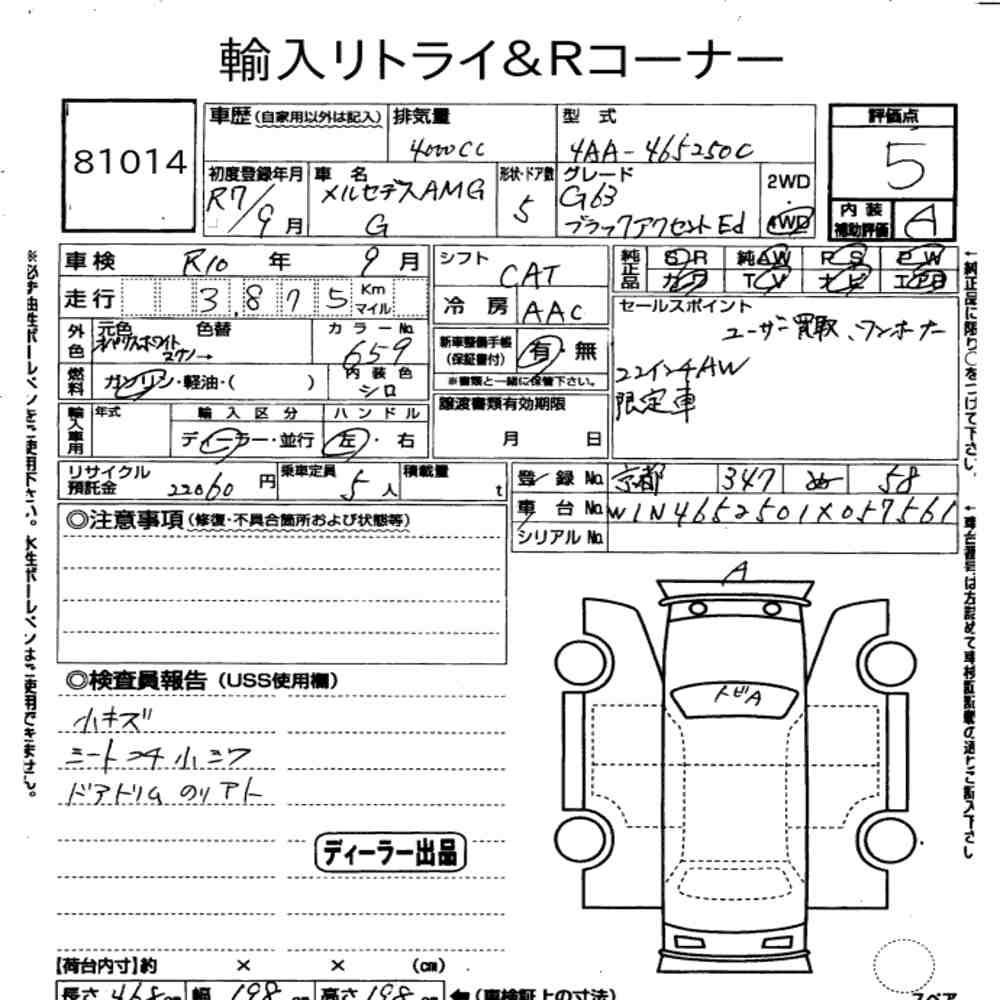 輸入リトライ&Rコーナー
81014
車歴(自家用以外は記入)
排気量
4000cc
型式
4AA-465250C
評価点
5
初度登録年月
R7/9月
車名
メルセデスAMG
G
形状・ドア数
5
グレード
G63
ブラックアクセントEd
2WD
4WD
内装
補助評価
A
車検 R10年 9月
走行 3,875 Km
マイル
シフト CAT
冷房 AAC
純正品
SR 純AW PS PW
カワ TV ナビ エアB
セールスポイント
ユーザー買取、ワンオーナー
22インチAW
限定車
外色
元色 色替
オパリスホワイト
カラーNo.
659
燃料
ガソリン・軽油・( )
内装色
シロ
新車整備手帳
(保証書付)
有・無
※書類と一緒に保管下さい。
譲渡書類有効期限
月 日
輸入車用
年式
輸入区分
ディーラー・並行
ハンドル
左・右
リサイクル
預託金
22060円
乗車定員 5人
積載量 t
登録No. 京都 347 ぬ 58
車台No. W1N4652501X057561
シリアルNo.
◎注意事項(修復・不具合箇所および状態等)
◎検査員報告(USS使用欄)
小キズ
シートコチ小シワ
ドアトリムのリアト
ディーラー出品
A
トビA
【荷台内寸】約 × × (cm)
長さ 468cm 幅 198cm 高さ 198cm ←(車検証上の寸法)
スペア
※必ず油性ボールペンをご使用下さい。水性ボールペンはご使用できません。
↑純正品に限り○をつけて下さい。